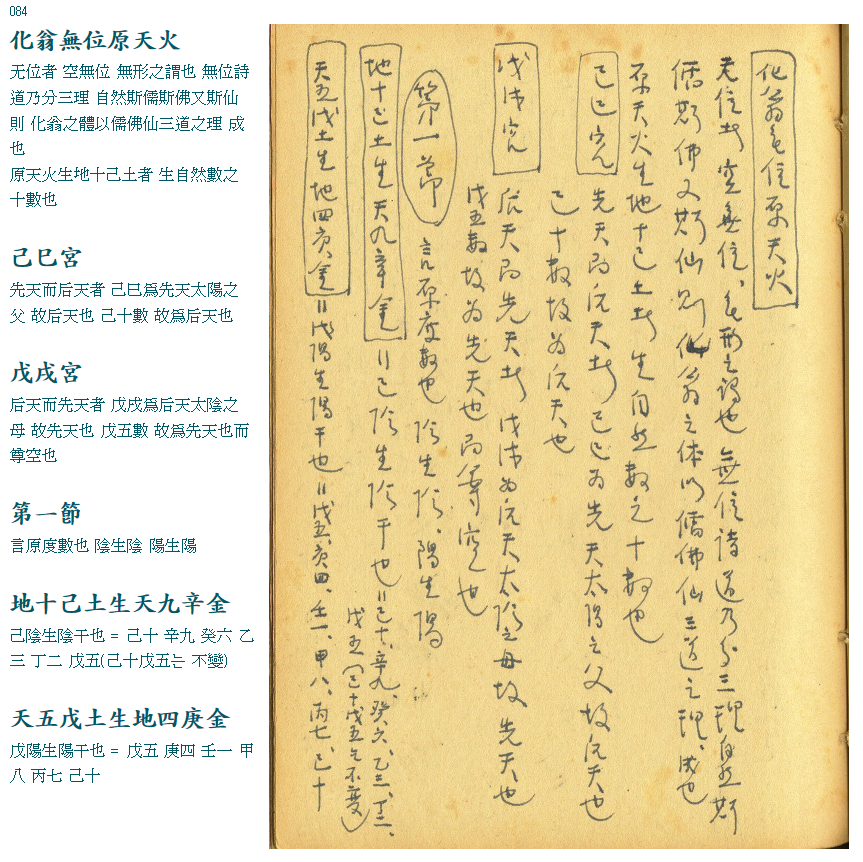 084
化翁無位原天火
无位者 空無位 無形之謂也 無位詩
道乃分三理 自然斯儒斯佛又斯仙
則 化翁之體以儒佛仙三道之理 成
也
原天火生地十己土者 生自然數之
十數也
己巳宮
先天而后天者 己巳爲先天太陽之
父 故后天也 己十數 故爲后天也
戊戌宮
后天而先天者 戊戌爲后天太陰之
母 故先天也 戊五數 故爲先天也而
尊空也
第一節
言原度數也 陰生陰 陽生陽
地十己土生天九辛金
己陰生陰干也 = 己十 辛九 癸六 乙
三 丁二 戊五(己十戊五는 不變)
天五戊土生地四庚金
戊陽生陽干也 = 戊五 庚四 壬一 甲
八 丙七 己十
化翁无位原天火
无位者 空無位、无形之謂也 無位詩 道乃分三理 自然斯
儒斯佛又斯仙 則 化翁之体以儒佛仙三道之理、成也
原天火生地十己土者 生自然數之十數也
己巳宮 先天而后天者 己巳为先天太陽之父 故后天也
己十數 故为后天也
戊戌宮 后天而先天者 戊戌为后天太陰之母 故 先天也
戊五數 故为先天也 而尊空也
第一節 言原度數也 陰生陰、陽生陽
地十己土生天九辛金 = 己陰生陰干也 = 己十、辛九、癸六、乙三、丁二、
戊五 (己十戊五는 不變)
天五戊土生地四庚金 = 戊陽生陽干也 = 戊五、庚四、壬一、甲八、丙七、己十